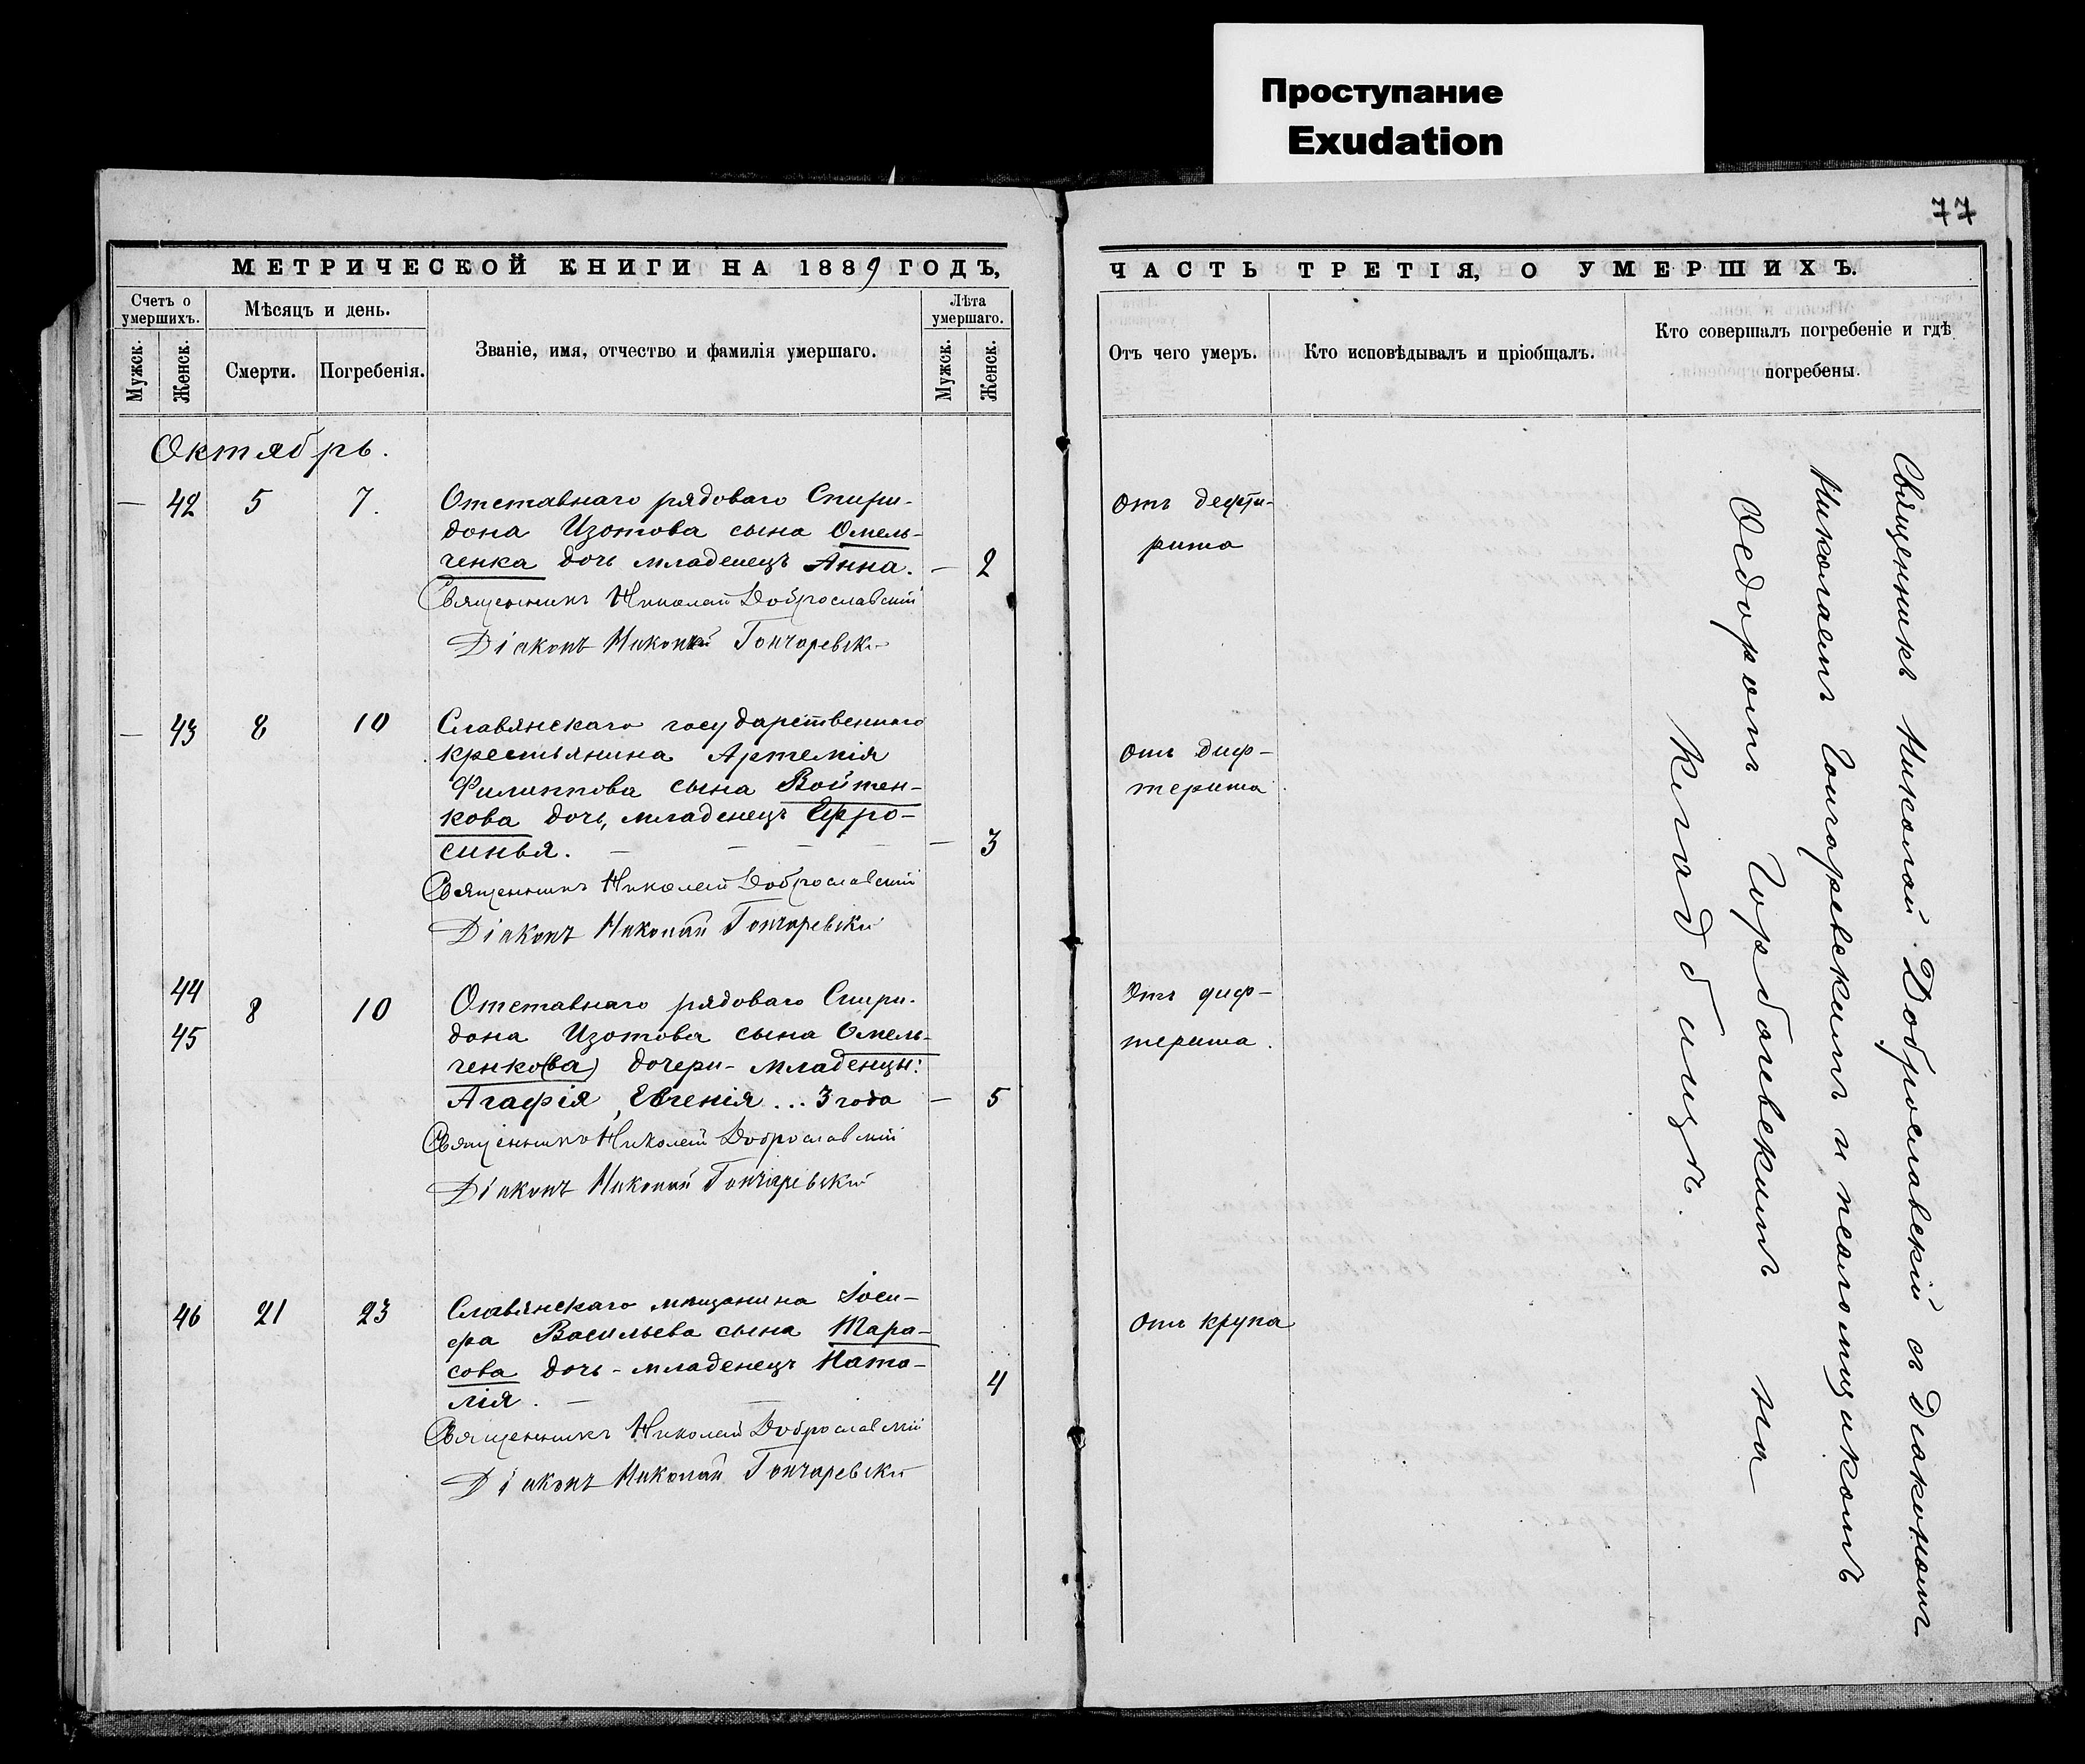 Проступание
Exudation
77
МЕТРИЧЕСКОЙ КНИГИ НА 1889 ГОДЪ,
Счетъ о умершихъ.
Мужск.
Женск.
Мѣсяцъ и день.
Смерти.
Погребенія.
Званіе, имя, отчество и фамилія умершаго.
Лѣта умершаго.
Мужск.
Женск.
Октябрь.
— 42 5 7. Отставнаго рядоваго Спири-
дона Изотова сына Омель-
ченка дочь младенецъ Анна. — 2
Священникъ Николай Доброславскій
Діаконъ Николай Гончаревскій
— 43 8 10 Славянскаго государственнаго
крестьянина Артемія
Филиппова сына Войтен-
кова дочь, младенецъ Ефро-
синья. — — — — — 3
Священникъ Николай Доброславскій
Діаконъ Николай Гончаревскій
44
45 8 10 Отставнаго рядоваго Спири-
дона Изотова сына Омель-
ченко(ва) дочери - младенцы:
Агафія, Евгенія ... 3 года — 5
Священникъ Николай Доброславскій
Діаконъ Николай Гончаревскій
46 21 23 Славянскаго мѣщанина Іоси-
фа Васильева сына Тара-
сова дочь - младенецъ Ната-
лія. — — 4
Священникъ Николай Доброславскій
Діаконъ Николай Гончаревскій
ЧАСТЬ ТРЕТІЯ, О УМЕРШИХЪ.
Отъ чего умеръ.
Кто исповѣдывалъ и пріобщалъ.
Кто совершалъ погребеніе и гдѣ
погребены.
отъ дефти-
рита
отъ диф-
терита
Отъ диф-
терита.
отъ крупа
Священникъ Николай Доброславскій съ Діакономъ
Николаемъ Гончаревскимъ и псаломщикомъ
Ѳедоромъ Горбачевскимъ на
кладбищѣ.